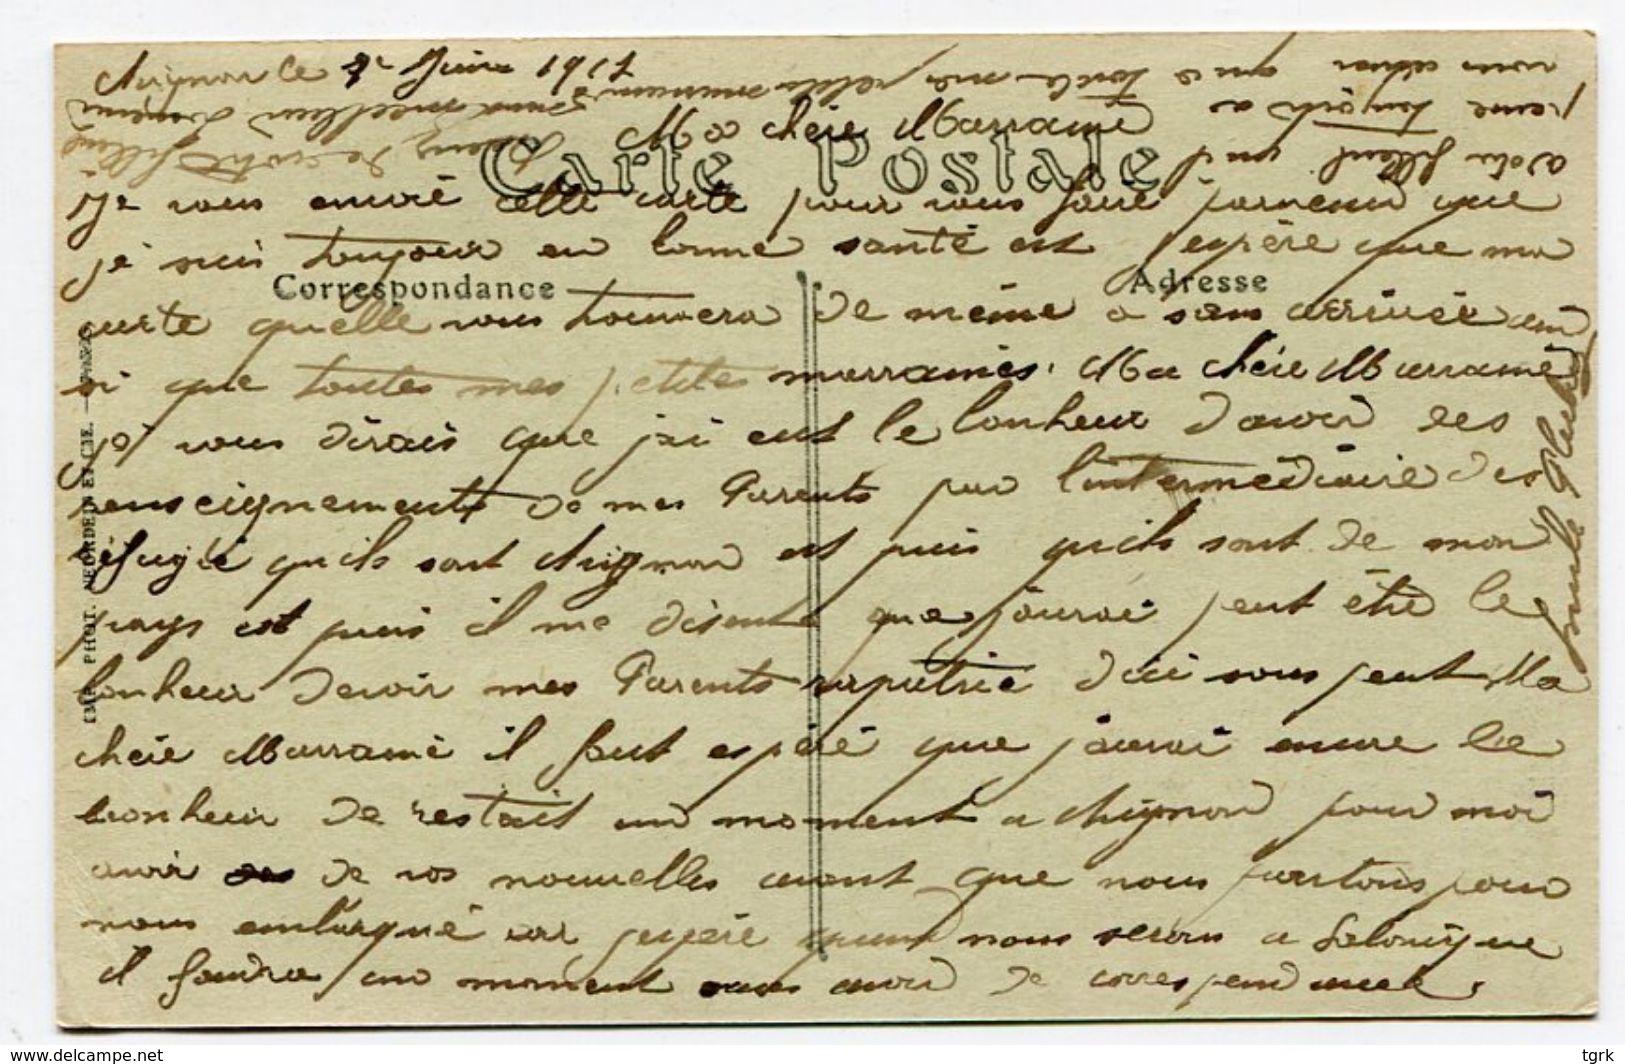 Avignon le 7 Juin 1917
Ma chère Marraine
Carte Postale
Je vous envoie cette carte pour vous faire parvenir que
je suis toujour en bonne santé est j'espère que ma
Correspondance
Adresse
carte quelle vous trouvera de même a son arrivée ain
si que toutes mes petites marraines. Ma chère Marraine
je vous dirais que jai eut le bonheur d'avoir des
renseignements de mes Parents par l'intermédiaire des
réfugié quils sont Avignon est puis quils sont de mon
pays est puis il me disent que jaurai peut être le
bonheur devoir mes Parents rapatrié d'ici sous peut Ma
chère Marraine il faut espéré que j'aurai encore le
bonheur de restait un moment a Avignon pour moi
avoir de vos nouvelles avant que nous partons pour
nous embarqué car jespère quand nous serons a Salonique
il faudra un moment sans avoir de correspondance.
a votre filleul qu'il
pense toujours a
vous ainsi que toute mes petites marraines
de votre filleul
IMP. PHOT. NEURDEIN ET CIE. — PARIS
www.delcampe.net
tgrk